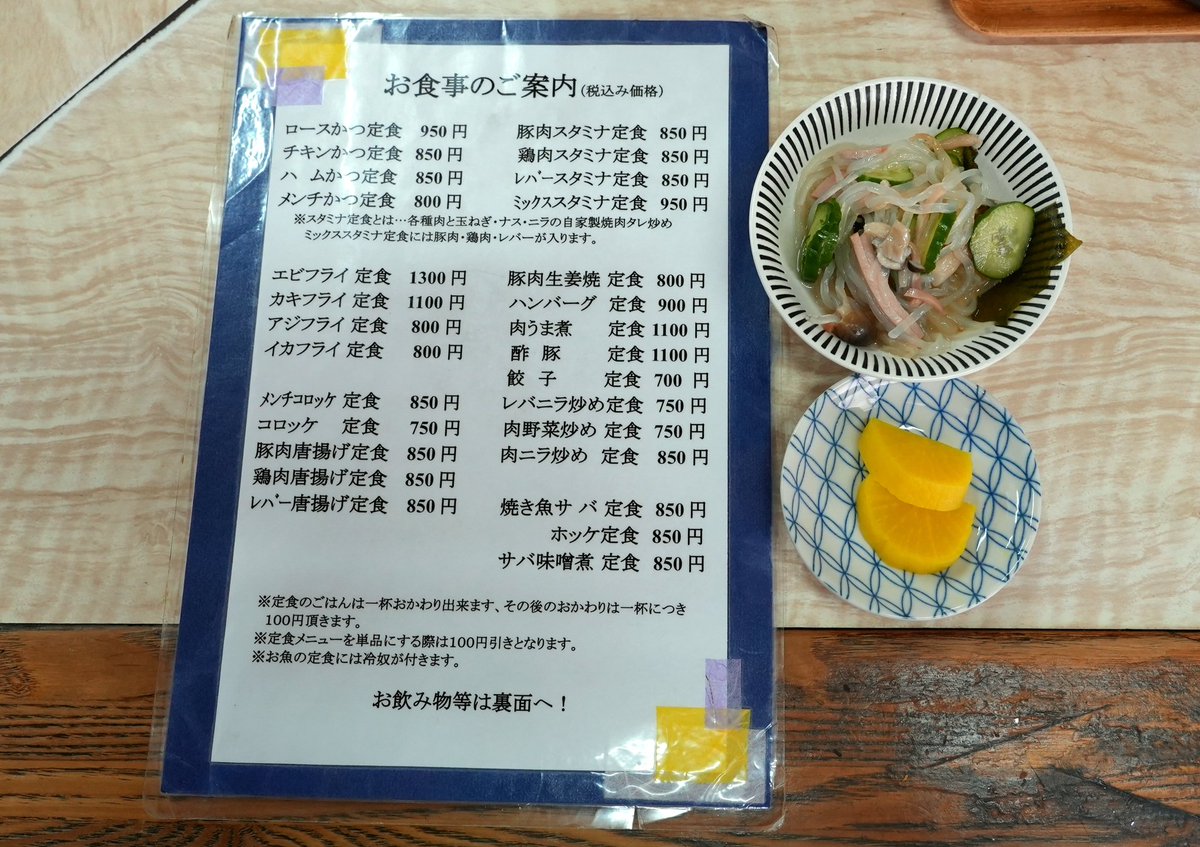 お食事のご案内(税込み価格)
ロースかつ定食 950円
チキンかつ定食 850円
ハムかつ定食 850円
メンチかつ定食 800円
豚肉スタミナ定食 850円
鶏肉スタミナ定食 850円
レバースタミナ定食 850円
ミックススタミナ定食 950円
※スタミナ定食とは…各種肉と玉ねぎ・ナス・ニラの自家製焼肉タレ炒め
ミックススタミナ定食には豚肉・鶏肉・レバーが入ります。
エビフライ定食 1300円
カキフライ定食 1100円
アジフライ定食 800円
イカフライ定食 800円
メンチコロッケ定食 850円
コロッケ 定食 750円
豚肉唐揚げ定食 850円
鶏肉唐揚げ定食 850円
レバー唐揚げ定食 850円
豚肉生姜焼 定食 800円
ハンバーグ 定食 900円
肉うま煮 定食 1100円
酢豚 定食 1100円
餃子 定食 700円
レバニラ炒め定食 750円
肉野菜炒め 定食 750円
肉ニラ炒め 定食 850円
焼き魚サバ 定食 850円
ホッケ定食 850円
サバ味噌煮 定食 850円
※定食のごはんは一杯おかわり出来ます、その後のおかわりは一杯につき
100円頂きます。
※定食メニューを単品にする際は100円引きとなります。
※お魚の定食には冷奴が付きます。
お飲み物等は裏面へ！